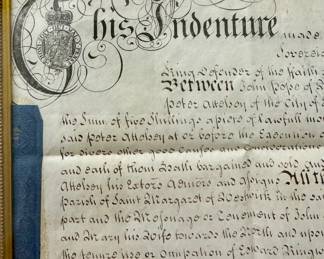 This Indenture made
Sovereig
King Defender of the Faith
Between John Pope of
Peter Attobey of the City of
the Sum of five Shillings a piece of Lawfull mon
said Peter Attobey at or before the Execution
for divers other good Causes and Considerations
and each of them Hath bargained and sold and
Attobey his Exõrs Admõrs and Assigns All th
parish of Saint Margaret of Westwick in the sa
part and the Messuage or Tenement of John
and Mary his Wife towards the North and upon
the tenure or Occupation of Edward Ringw